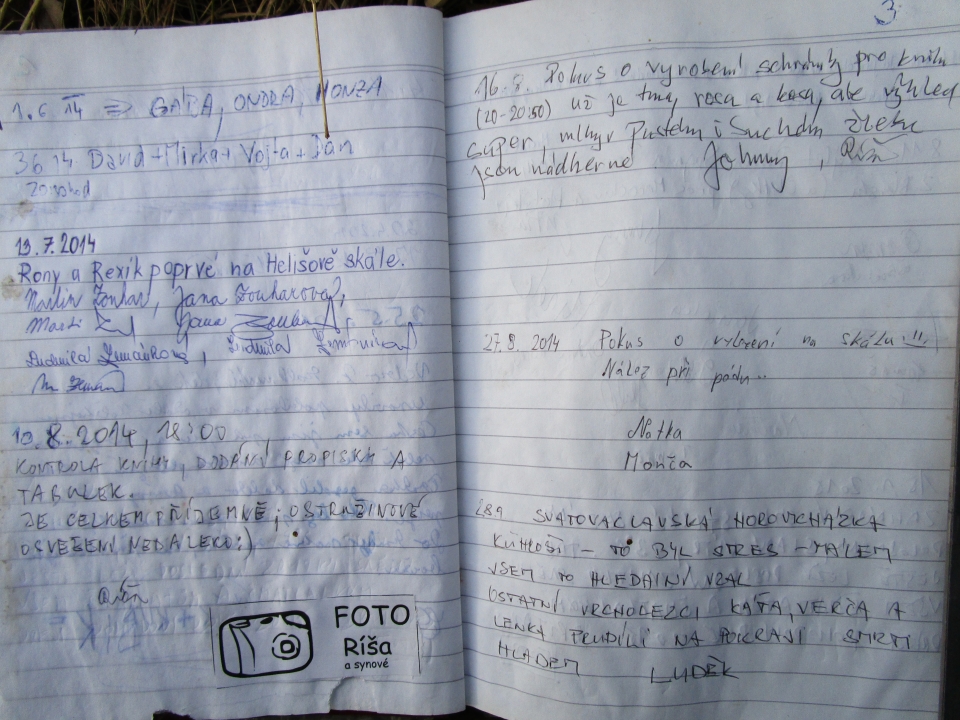 1.6 14 => GÁŤA, ONDRA, HONZA
36 14 David + Mirka + Vojta + Jan
13.7.2014
Rony a Rexík poprvé na Helišově skále.
Martin Zouhar, Jana Zouharová,
Jana
Ludmila
10.8.2014, 18:00
KONTROLA KNIHY, DODÁNÍ PROPISKY A
TABULEK.
JE CELKEM PŘÍJEMNĚ, OSTRUŽINOVÉ
OSVĚŽENÍ NEDALEKO :)
Ríša
FOTO
Ríša
a synové
3
16.8. Pokus o vyrobení schránky pro knihu
(20-20:50) už je tma, rosa a kosa, ale výhled
super, mlhy Pustém i Suchém žlebu
jsou nádherné Johnny, Ríša
27.9. 2014 Pokus o vylezení na skálu!!!
Nález při pádu...
Natka
Monča
28.9 SVATOVÁCLAVSKÁ HOROVYCHÁZKA
- TO BYL STRES - MÁLEM
VŠEM TO HLEDÁNÍ VZAL
OSTATNÍ VRCHOLEZCI KÁŤA, VERČA A
LENKA PRUDÍLI NA POKRAJI SMRTI
HLADEM LUDĚK